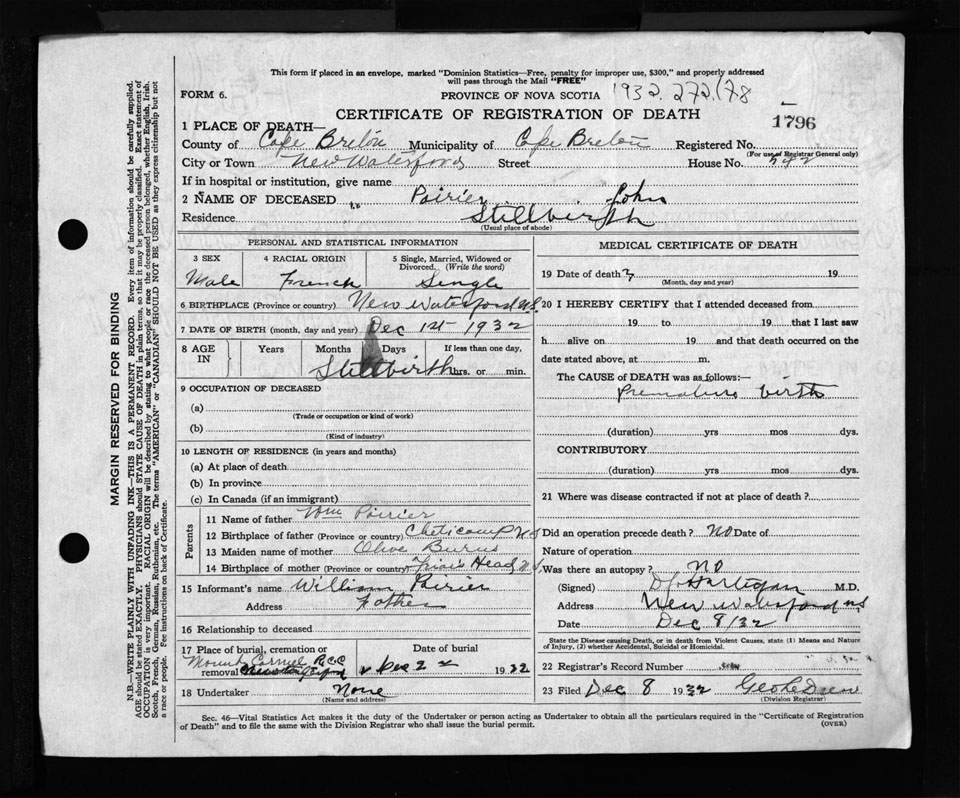 This form if placed in an envelope, marked "Dominion Statistics—Free, penalty for improper use, $300," and properly addressed
will pass through the Mail "FREE"
FORM 6.
PROVINCE OF NOVA SCOTIA 1932. 272/78
CERTIFICATE OF REGISTRATION OF DEATH
1796
1 PLACE OF DEATH—
County of Cape Breton Municipality of Cape Breton Registered No.
(For use of Registrar General only)
City or Town New Waterford Street House No.
If in hospital or institution, give name
2 NAME OF DECEASED Poirier John
Residence Stillbirth
(Usual place of abode)
PERSONAL AND STATISTICAL INFORMATION
3 SEX 4 RACIAL ORIGIN 5 Single, Married, Widowed or
Divorced. (Write the word)
Male French Single
6 BIRTHPLACE (Province or country) New Waterford N.S.
7 DATE OF BIRTH (month, day and year) Dec 1st 1932
8 AGE IN Years Months Days If less than one day,
Stillbirth hrs. or min.
9 OCCUPATION OF DECEASED
(a)
(Trade or occupation or kind of work)
(b)
(Kind of industry)
10 LENGTH OF RESIDENCE (in years and months)
(a) At place of death
(b) In province
(c) In Canada (if an immigrant)
Parents
11 Name of father Wm Poirier
12 Birthplace of father (Province or country) Cheticamp N.S
13 Maiden name of mother Olive Burns
14 Birthplace of mother (Province or country) Friars Head N.S
15 Informant's name William Poirier
Address Father
16 Relationship to deceased
17 Place of burial, cremation or Date of burial
Mount Carmel R.C.C
removal Dec 2 1932
18 Undertaker None
(Name and address)
MEDICAL CERTIFICATE OF DEATH
19 Date of death 19
(Month, day and year)
20 I HEREBY CERTIFY that I attended deceased from
19 to 19 that I last saw
h alive on 19 and that death occurred on the
date stated above, at m.
The CAUSE OF DEATH was as follows:—
Premature birth
(duration) yrs mos dys.
CONTRIBUTORY
(duration) yrs mos dys.
21 Where was disease contracted if not at place of death?
Did an operation precede death? No Date of
Nature of operation
Was there an autopsy? No
(Signed) Hartigan M.D.
Address New Waterford N.S
Date Dec 8/32
State the Disease causing Death, or in death from Violent Causes, state (1) Means and Nature
of Injury, (2) whether Accidental, Suicidal or Homicidal.
22 Registrar's Record Number
23 Filed Dec 8 1932
(Division Registrar)
Sec. 46—Vital Statistics Act makes it the duty of the Undertaker or person acting as Undertaker to obtain all the particulars required in the "Certificate of Registration
of Death" and to file the same with the Division Registrar who shall issue the burial permit.
(OVER)
MARGIN RESERVED FOR BINDING
N.B.—WRITE PLAINLY WITH UNFADING INK—THIS IS A PERMANENT RECORD. Every item of information should be carefully supplied.
AGE should be stated EXACTLY. PHYSICIANS should STATE CAUSE OF DEATH in plain terms, so that it may be properly classified. Exact statement of
OCCUPATION is very important. RACIAL ORIGIN will be described by stating to what people or race the deceased person belonged, whether English, Irish,
Scotch, French, German, Russian, Ruthenian, etc. The terms "AMERICAN" or "CANADIAN" SHOULD NOT BE USED as they express citizenship but not
a race or people. Fee instructions on back of Certificate.